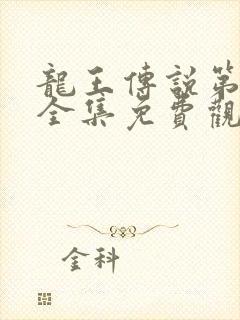 龍王傳說第
全集免費觀
金科